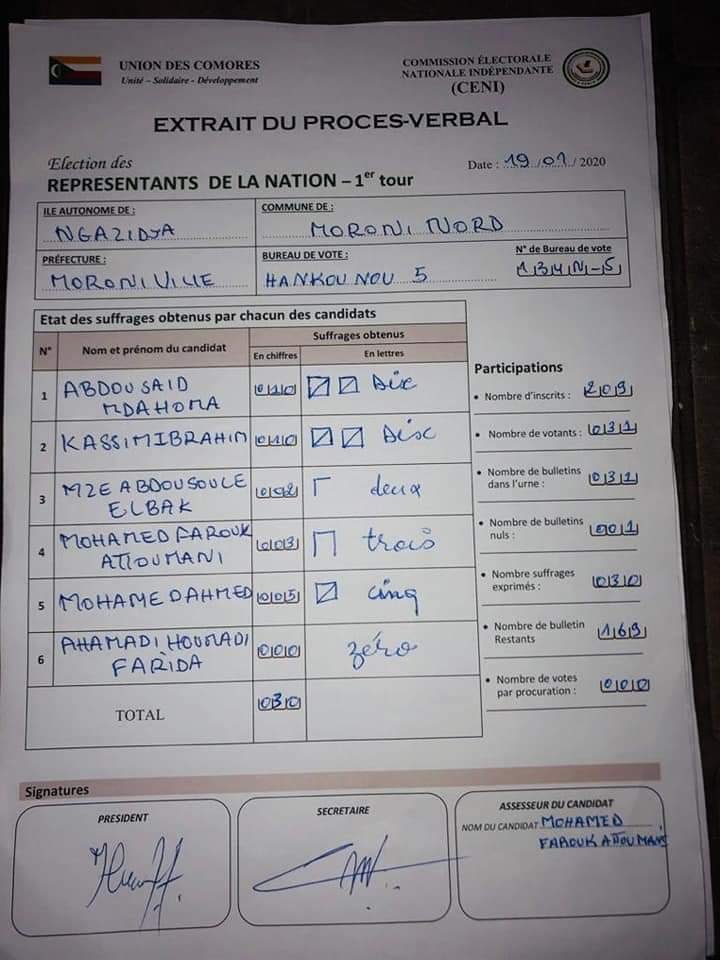 UNION DES COMORES
Unité – Solidaire - Développement
COMMISSION ÉLECTORALE
NATIONALE INDÉPENDANTE
(CENI)
EXTRAIT DU PROCES-VERBAL
Election des
REPRESENTANTS DE LA NATION – 1er tour
Date : 19/01/2020
ILE AUTONOME DE :
NGAZIDJA
COMMUNE DE :
MORONI NORD
PRÉFECTURE :
MORONI VILLE
BUREAU DE VOTE :
HANKOUNOU 5
N° de Bureau de vote
134N-5
Etat des suffrages obtenus par chacun des candidats
N°
Nom et prénom du candidat
Suffrages obtenus
En chiffres
En lettres
1
ABDOU SAID
MDAHOMA
010
Dix
2
KASSIM IBRAHIM
010
Dix
3
MZE ABDOU SOULE
ELBAK
002
deux
4
MOHAMED FAROUK
ATTOUMANI
003
trois
5
MOHAMED AHMED
005
cinq
6
AHAMADI HOUMADI
FARIDA
000
zéro
TOTAL
030
Participations
• Nombre d'inscrits : 209
• Nombre de votants : 031
• Nombre de bulletins
dans l'urne : 031
• Nombre de bulletins
nuls : 001
• Nombre suffrages
exprimés : 030
• Nombre de bulletin
Restants 169
• Nombre de votes
par procuration : 000
Signatures
PRESIDENT
SECRETAIRE
ASSESSEUR DU CANDIDAT
NOM DU CANDIDAT MOHAMED
FAROUK ATTOUMANI